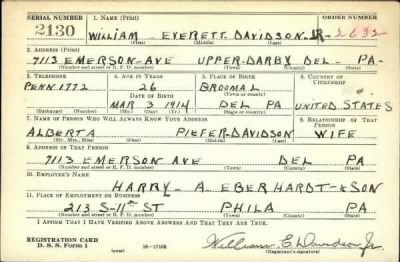 SERIAL NUMBER 1. NAME (Print) ORDER NUMBER
2130 WILLIAM EVERETT DAVIDSON JR 2632
(First) (Middle) (Last)
2. ADDRESS (Print)
7113 EMERSON-AVE UPPER-DARBY DEL- PA-
(Number and street or R. F. D. number) (Town) (County) (State)
3. TELEPHONE 4. AGE IN YEARS 5. PLACE OF BIRTH 6. COUNTRY OF CITIZENSHIP
PENN 1772 26 BROOMAL
DATE OF BIRTH (Town or county)
MAR 3 1914 DEL PA UNITED STATES
(Exchange) (Number) (Mo.) (Day) (Yr.) (State or country)
7. NAME OF PERSON WHO WILL ALWAYS KNOW YOUR ADDRESS 8. RELATIONSHIP OF THAT PERSON
ALBERTA PIEFER-DAVIDSON WIFE
(Mr., Mrs., Miss) (First) (Middle) (Last)
9. ADDRESS OF THAT PERSON
7113 EMERSON AVE DEL PA
(Number and street or R. F. D. number) (Town) (County) (State)
10. EMPLOYER'S NAME
HARRY- A. EBERHARDT-&SON
11. PLACE OF EMPLOYMENT OR BUSINESS
213 S-11th ST PHILA PA
(Number and street or R. F. D. number) (Town) (County) (State)
I AFFIRM THAT I HAVE VERIFIED ABOVE ANSWERS AND THAT THEY ARE TRUE.
REGISTRATION CARD
D. S. S. Form 1 (over) 16-17105 William E. Davidson Jr.
(Registrant's signature)